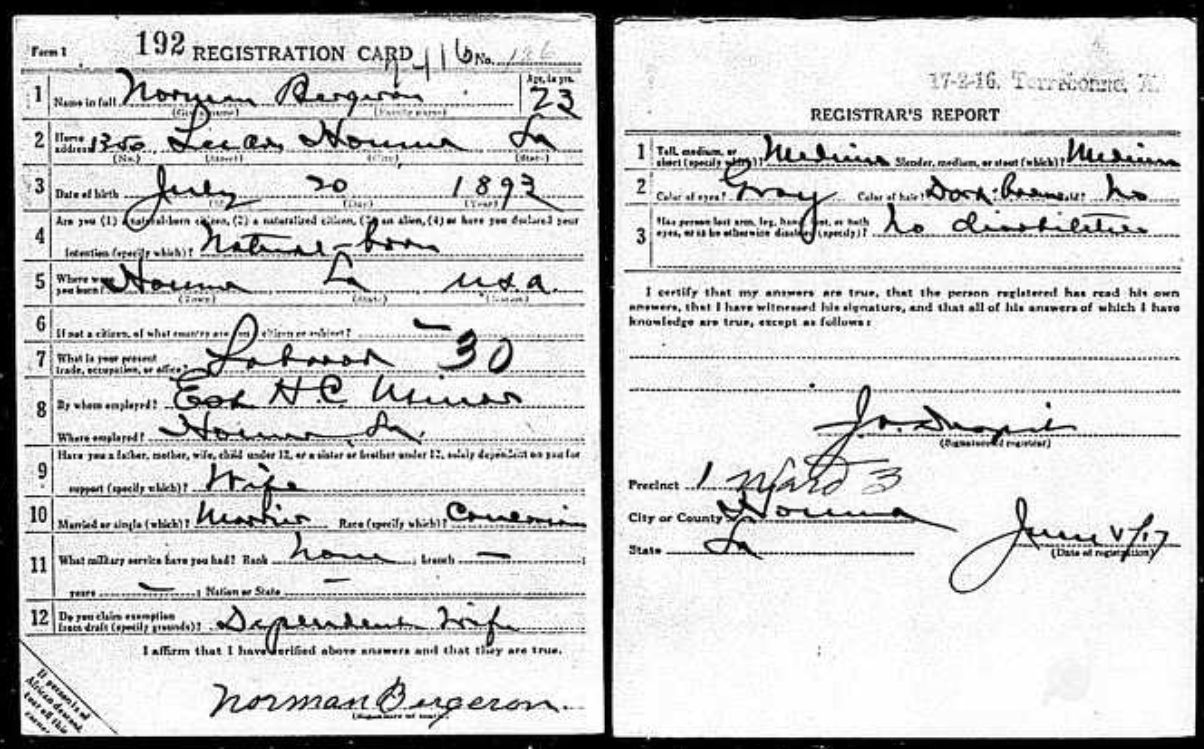 Form 1 192 REGISTRATION CARD No. 126
1 Name in full Norman Bergeron Age, in yrs. 23
(Given name) (Family name)
2 Home address 1350 Houma La
(No.) (Street) (City) (State)
3 Date of birth July 20 1893
(Month) (Day) (Year)
4 Are you (1) a natural-born citizen, (2) a naturalized citizen, (3) an alien, (4) or have you declared your
intention (specify which)? Natural-born
5 Where were you born? Houma La U.S.A.
(Town) (State) (Nation)
6 If not a citizen, of what country are you a citizen or subject? —
7 What is your present trade, occupation, or office? Laborer 30
8 By whom employed? Est H.C. Minor
Where employed? Houma, La.
9 Have you a father, mother, wife, child under 12, or a sister or brother under 12, solely dependent on you for
support (specify which)? Wife
10 Married or single (which)? Married Race (specify which)? Caucasian
11 What military service have you had? Rank none ; branch — ;
years — ; Nation or State —
12 Do you claim exemption from draft (specify grounds)? Dependent Wife
I affirm that I have verified above answers and that they are true.
Norman Bergeron
(Signature or mark)
If person is of
African descent,
tear off this
corner
17-2-16. Terrebonne,
REGISTRAR'S REPORT
1 Tall, medium, or short (specify which)? Medium Slender, medium, or stout (which)? Medium
2 Color of eyes? Gray Color of hair? Dark brown Bald? No
3 Has person lost arm, leg, hand, foot, or both eyes, or is he otherwise disabled (specify)? No disabilities
I certify that my answers are true, that the person registered has read his own
answers, that I have witnessed his signature, and that all of his answers of which I have
knowledge are true, except as follows:
(Signature of registrar)
Precinct 1 Ward 3
City or County Houma
State La June 5/17
(Date of registration)